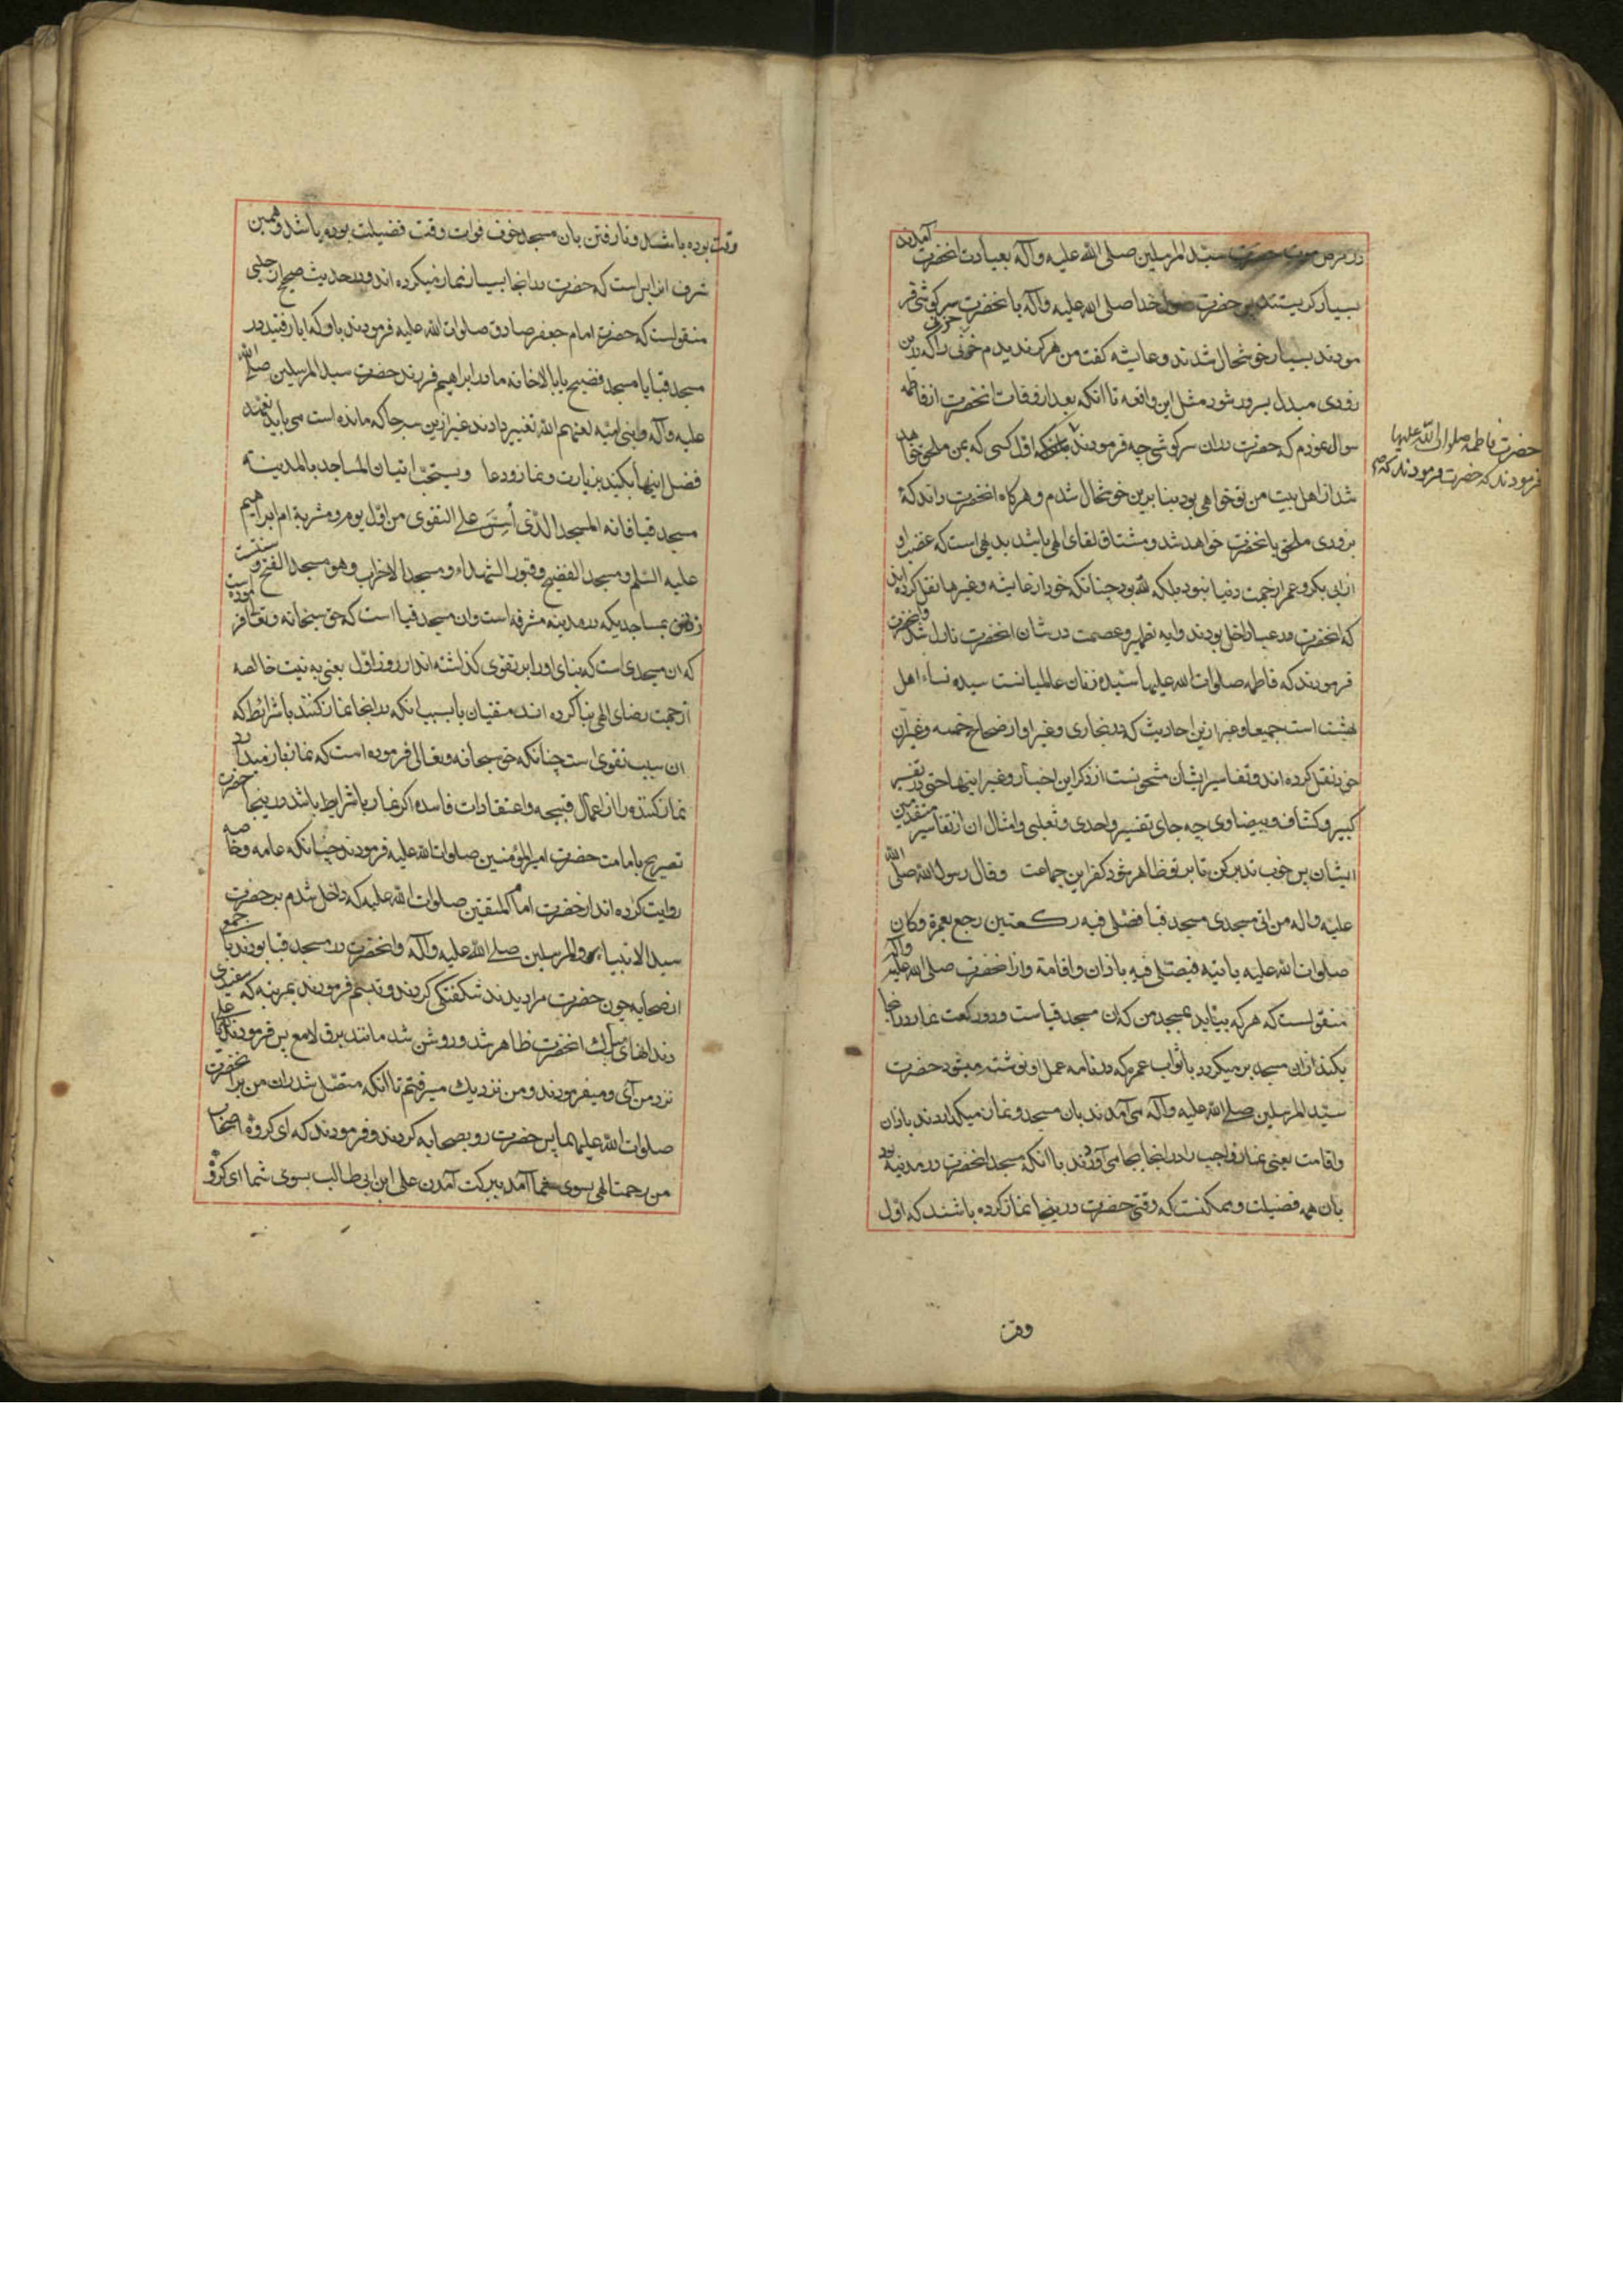 در مرض موت حضرت سید المرسلین صلی الله علیه و آله بعیادت انحضرت آمدند
بسیار کریستند پس حضرت رسول خدا صلی الله علیه و آله با انحضرت سرکوشی فر
مودند بسیار خوشحال شدند و عایشه کفت من هرکز ندیدم حزنی را که باین
زودی مبدل بسرور شود مثل این واقعه تا انکه بعد از وفات انحضرت از فاطمه
سوال نمودم که حضرت در ان سرکوشی چه فرمودند اول کسی که بمن ملحق خواهد
شد از اهل بیت من تو خواهی بود بنا برین خوشحال شدم و هرکاه انحضرت داند که
بزودی ملحق بانحضرت خواهد شد و مشتاق لقای الهی باشد بدیهی است که غضب او
از ابی بکر و عمر از جهت دنیا نبود بلکه لله بود چنانکه خود از عایشه و غیرها نقل کرده اند
که انحضرت در عبا داخل بودند و ایه تطهیر و عصمت در شان انحضرت نازل شد و انحضرت
فرمودند که فاطمه صلوات الله علیها سیده زنان عالمیانست سیده نساء اهل
بهشت است جمیعا و غیر ازین احادیث که در بخاری و غیر او از صحاح خمسه و غیر ان
خود نقل کرده اند و تفاسیر ایشان مشحونست از ذکر این اخبار و غیر اینها حتی در تفسیر
کبیر و کشاف و بیضاوی چه جای تفسیر واحدی و ثعلبی و امثال ان از تفاسیر متقدمین
ایشان پس خوب تدبر کن تا بر تو ظاهر شود کفر این جماعت و قال رسول الله صلی الله
علیه و اله من اتی مسجدی مسجد قبا فصلی فیه رکعتین رجع بعمرة و کان
صلوات الله علیه یاتیه فیصلی فیه باذان و اقامة و از انحضرت صلی الله علیه و آله
منقولست که هر که بیاید بمسجد من که ان مسجد قباست و دو رکعت نماز در انجا
بکند از ان مسجد بر میکردد با ثواب عمره که در نامه عمل او نوشته میشود حضرت
سید المرسلین صلی الله علیه و آله می آمدند بان مسجد و نماز میکذاردند باذان
و اقامت یعنی نماز واجب را در انجا بجا می آوردند با انکه مسجد انحضرت در مدینه بود
بان همه فضیلت و ممکنست که وقتی حضرت در ینجا نماز کرده باشند که اول
حضرت فاطمه صلوات الله علیها
فرمودند که حضرت فرمودند که
وقت
وقت بوده باشد و تا رفتن بان مسجد خوف فوات وقت فضیلت بوده باشد و همین
شرف انرا بس است که حضرت در انجا بسیار نماز میکرده اند و در حدیث صحیح از حلبی
منقولست که حضرت امام جعفر صادق صلوات الله علیه فرمودند باو که ایا رفتید در
مسجد قبا یا مسجد فضیح یا بالاخانه مادر ابراهیم فرزند حضرت سید المرسلین صلی الله
علیه و آله و بنی امیه لعنهم الله تغییر دادند غیر ازین سه جا که مانده است می باید
فضل اینها بکنید بزیارت و نماز و دعا و یستحب اتیان المساجد بالمدینة
مسجد قبا فانه المسجد الذی أسس علی التقوی من اول یوم و مشربة ام ابراهیم
علیه السلم و مسجد الفضیح و قبور الشهداء و مسجد الاحزاب و هو مسجد الفتح و سنتست
رفتن بمساجدیکه در مدینه مشرفه است و ان مسجد قبا است که حق سبحانه و تعالی فرموده است
که ان مسجدی است که بنای او را بر تقوی کذاشته اند از روز اول یعنی به نیت خالصه
از جهت رضای الهی بنا کرده اند متقیان یا بسبب انکه در انجا نماز کنند با شرائط که
ان سبب تقوی است چنانکه حق سبحانه و تعالی فرموده است که نماز باز میدارد
نماز کننده را از اعمال قبیحه و اعتقادات فاسده اکر نماز با شرایط باشد و در ینجا حضرت
تصریح بامامت حضرت امیر المؤمنین صلوات الله علیه فرمودند چنانکه عامه و خاصه
روایت کرده اند از حضرت امام المتقین صلوات الله علیه که داخل شدم بر حضرت
سید الانبیاء و المرسلین صلی الله علیه و آله و انحضرت در مسجد قبا بودند با جمعی
از صحابه چون حضرت مرا دیدند شکفتکی کردند و تبسم فرمودند بمرتبه که سفیدی
دندانهای مبارک انحضرت ظاهر شد و روشن شد مانند برق لامع پس فرمودند یا علی
نزد من آی و میفرمودند و من نزدیک میرفتم تا انکه متصل شد ران من بر انحضرت
صلوات الله علیهما پس حضرت رو بصحابه کردند و فرمودند که ای کروه اصحاب
من رحمت الهی بسوی شما آمد ببرکت آمدن علی ابن ابی طالب بسوی شما ای کروه